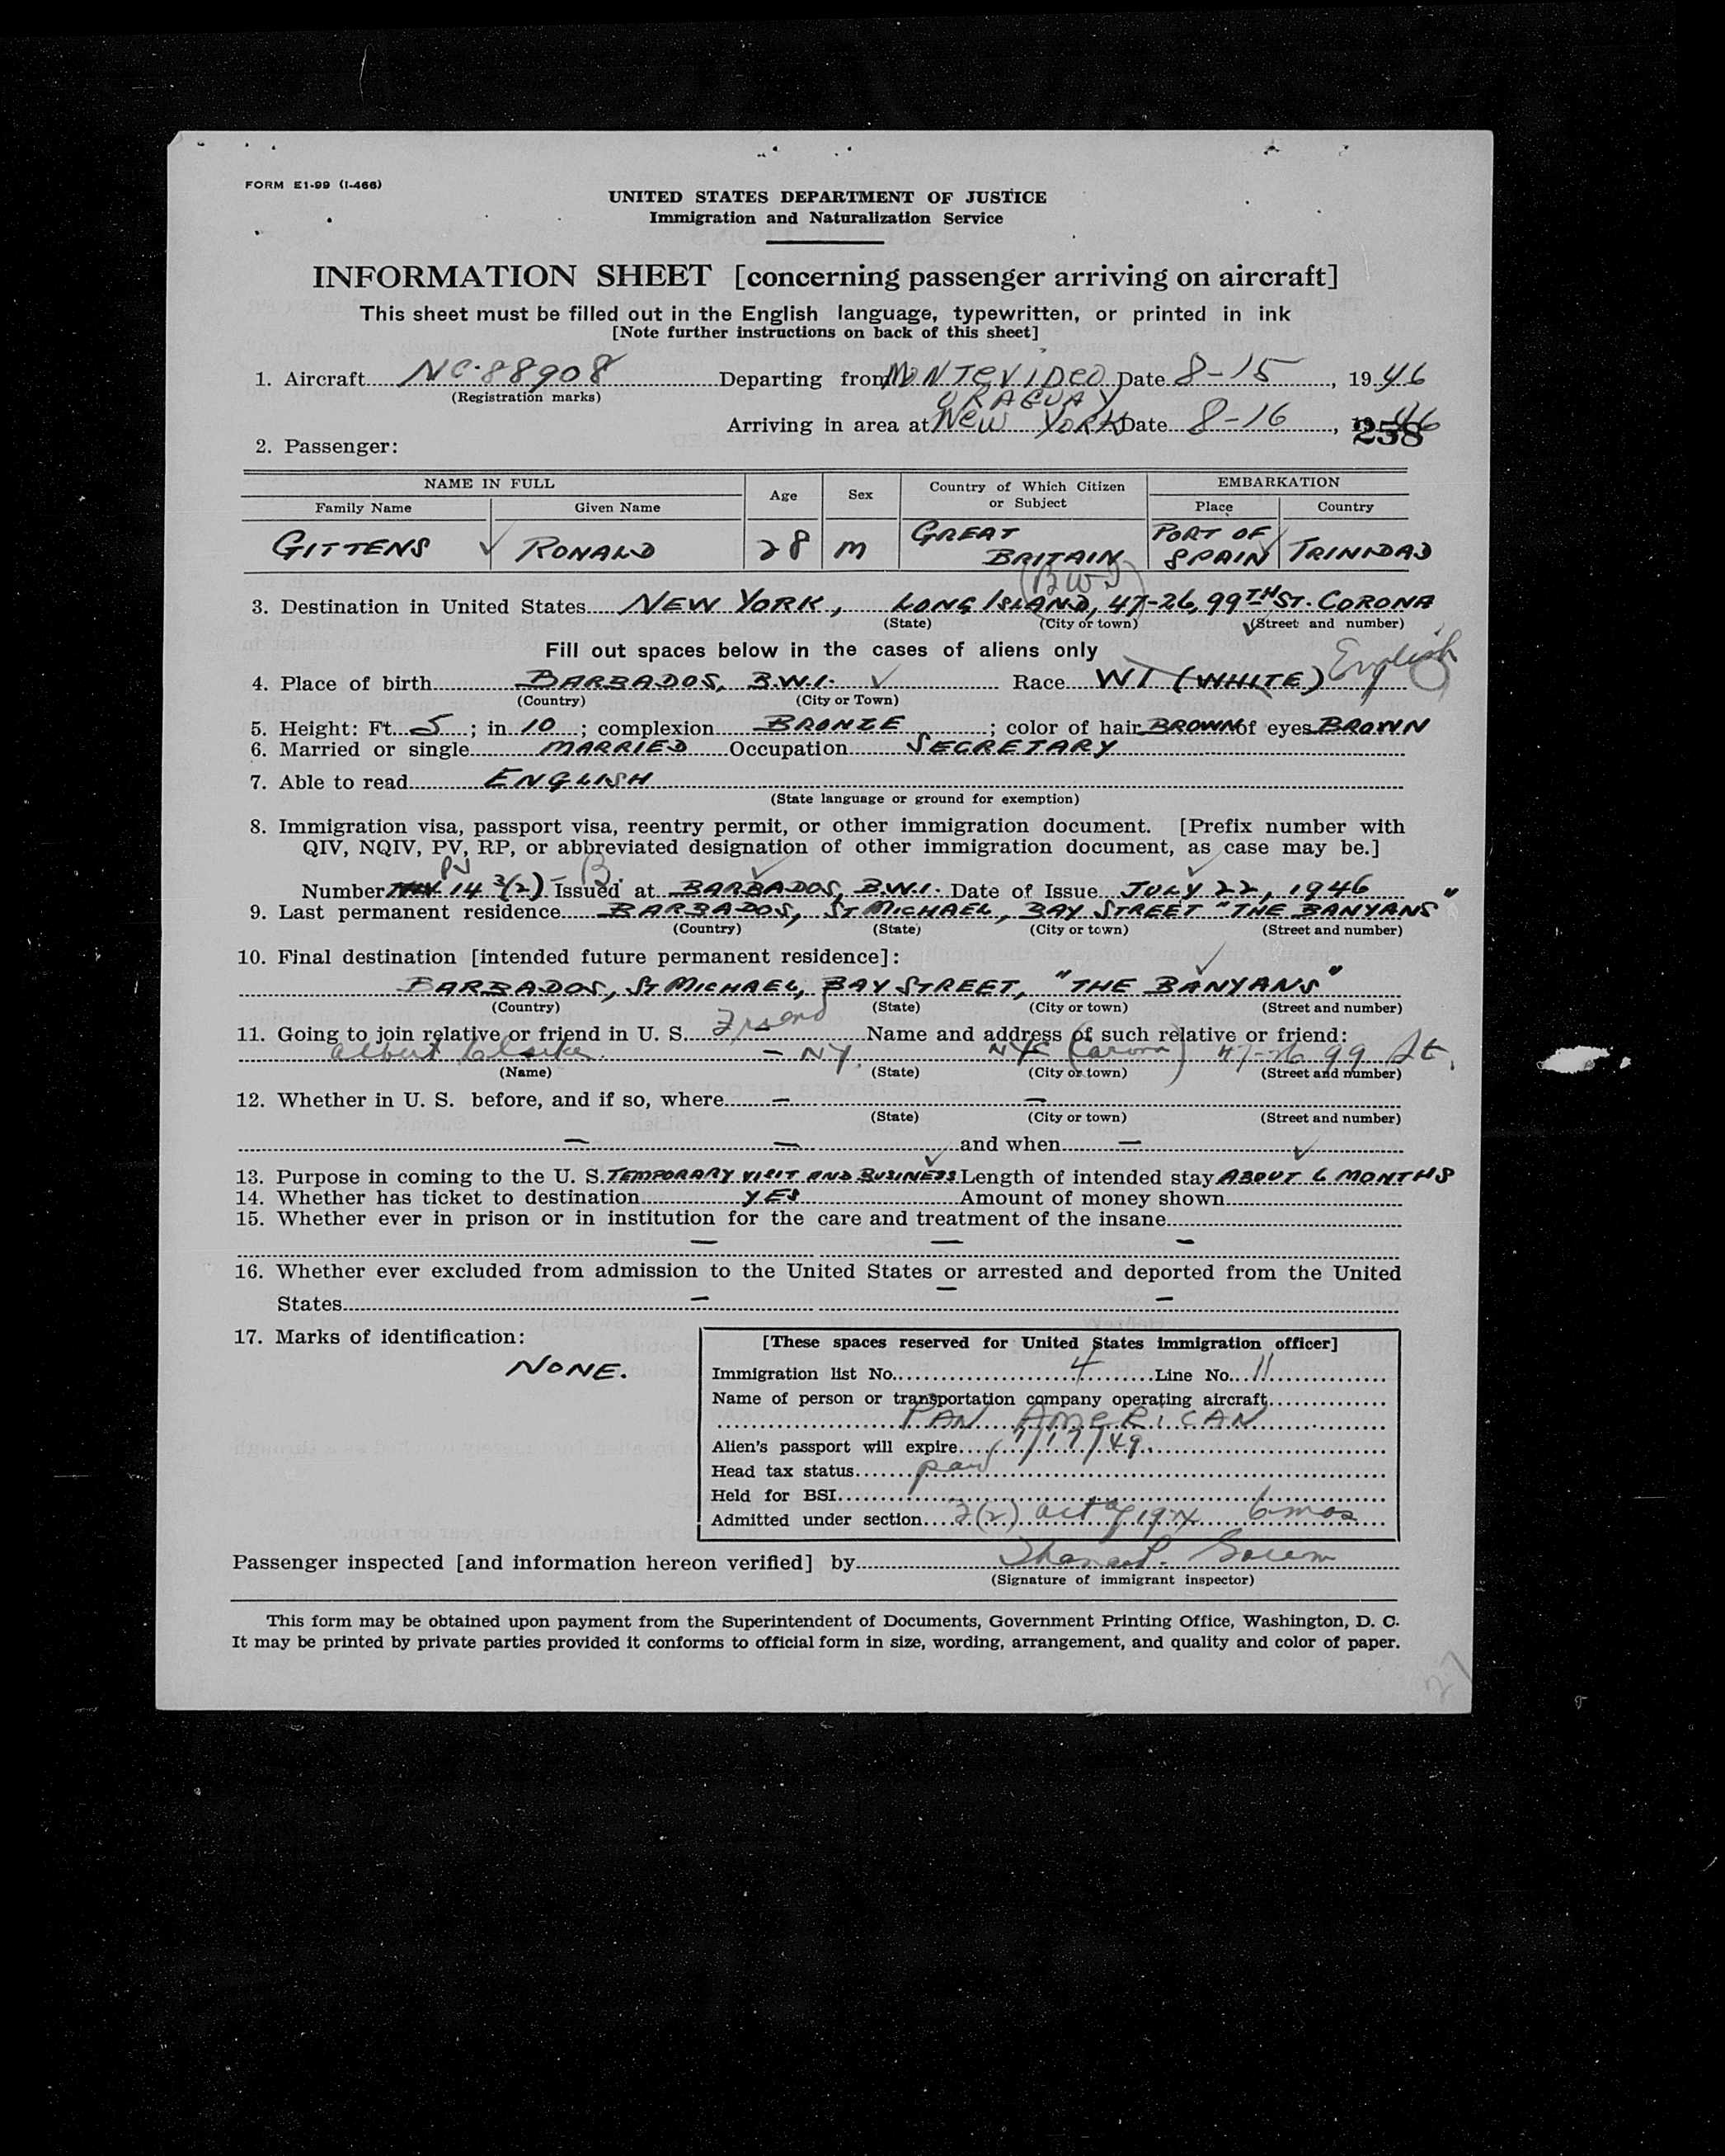 FORM E1-99 (I-466)
UNITED STATES DEPARTMENT OF JUSTICE
Immigration and Naturalization Service
INFORMATION SHEET [concerning passenger arriving on aircraft]
This sheet must be filled out in the English language, typewritten, or printed in ink
[Note further instructions on back of this sheet]
1. Aircraft NC-88908 Departing from MONTEVIDEO Date 8-15, 1946
(Registration marks) URAGUAY
Arriving in area at New YORK Date 8-16, 1946
258
2. Passenger:
NAME IN FULL Age Sex Country of Which Citizen or Subject EMBARKATION
Family Name Given Name Place Country
GITTENS ✓ RONALD 28 M GREAT BRITAIN PORT OF SPAIN TRINIDAD
(BWI)
3. Destination in United States NEW YORK, LONG ISLAND, 47-26, 99TH ST. CORONA
(State) (City or town) (Street and number)
Fill out spaces below in the cases of aliens only
4. Place of birth BARBADOS, B.W.I. ✓ Race WT (WHITE) English
(Country) (City or Town)
5. Height: Ft. 5; in. 10; complexion BRONZE; color of hair BROWN of eyes BROWN
6. Married or single MARRIED Occupation SECRETARY
7. Able to read ENGLISH
(State language or ground for exemption)
8. Immigration visa, passport visa, reentry permit, or other immigration document. [Prefix number with
QIV, NQIV, PV, RP, or abbreviated designation of other immigration document, as case may be.]
PV B.
Number 14 3(2) Issued at BARBADOS, B.W.I. Date of Issue JULY 22, 1946
9. Last permanent residence BARBADOS, ST MICHAEL, BAY STREET "THE BANYANS"
(Country) (State) (City or town) (Street and number)
10. Final destination [intended future permanent residence]:
BARBADOS, ST MICHAEL, BAY STREET, "THE BANYANS"
(Country) (State) (City or town) (Street and number)
11. Going to join relative or friend in U. S. Friend Name and address of such relative or friend:
Albert - NY. NYC (Corona) 47-26 99 St.
(Name) (State) (City or town) (Street and number)
12. Whether in U. S. before, and if so, where — —
(State) (City or town) (Street and number)
— — and when —
13. Purpose in coming to the U. S. TEMPORARY VISIT AND BUSINESS Length of intended stay ABOUT 6 MONTHS
14. Whether has ticket to destination YES Amount of money shown
15. Whether ever in prison or in institution for the care and treatment of the insane
— — —
16. Whether ever excluded from admission to the United States or arrested and deported from the United
States — — —
17. Marks of identification:
NONE.
[These spaces reserved for United States immigration officer]
Immigration list No. 4 Line No. 11
Name of person or transportation company operating aircraft
PAN AMERICAN
Alien's passport will expire 7/17/49.
Head tax status paid
Held for BSI
Admitted under section 3(2) act of 1924 6 mos
Passenger inspected [and information hereon verified] by
(Signature of immigrant inspector)
This form may be obtained upon payment from the Superintendent of Documents, Government Printing Office, Washington, D. C.
It may be printed by private parties provided it conforms to official form in size, wording, arrangement, and quality and color of paper.
27